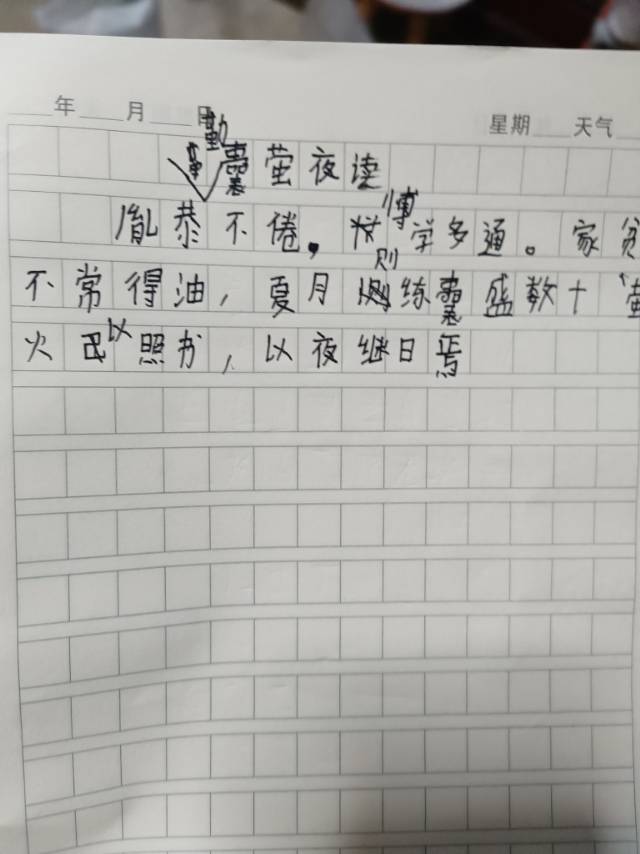 年 月 日 星期 天气
囊萤夜读
胤恭不倦，博学多通。家贫
不常得油，夏月则练囊盛数十萤
火以照书，以夜继日焉